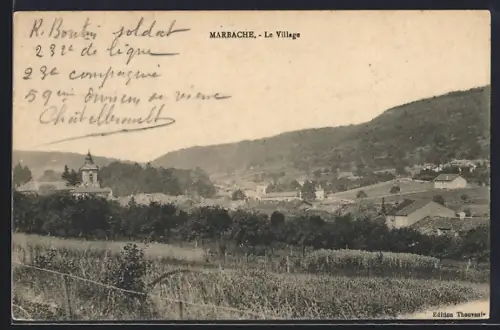 R. Boutin soldat
232e de ligne
28e compagnie
59 division de
Châtellerault
MARBACHE. - Le Village
Edition Thouvenin